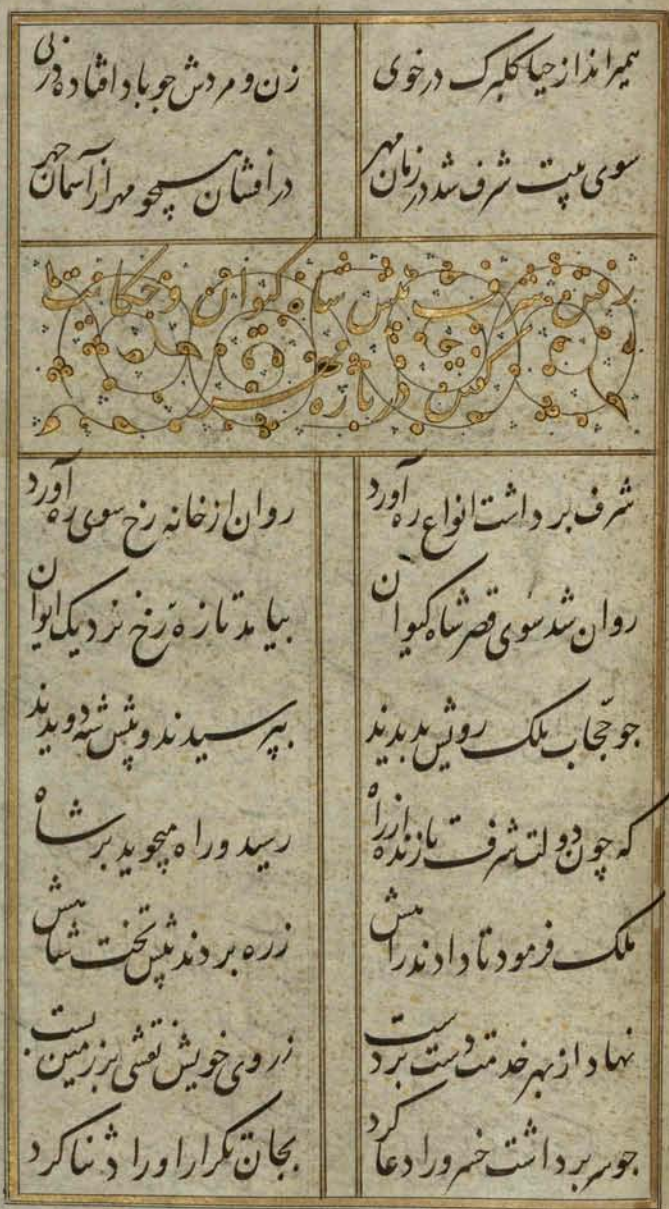 همیراند از حیا کلبرک در خوی
زن و مردش جو باد افتاده در پی
سوی بیت شرف شد در زمان مهر
درافشان همچو مهر از آسمان جهر
رفتن شرف پیش شاه کیوان و حکایت
کفتن در باره مهر
شرف برداشت انواع ره آورد
روان از خانه رخ سوی ره آورد
روان شد سوی قصر شاه کیوان
بیامد تازه رخ نزدیک ایوان
جو حجّاب ملک رویش بدیدند
بپرسیدند و پیش شه دویدند
که چون دولت شرف باز آمد از راه
رسید و راه میجوید بر شاه
ملک فرمود تا دادند راهش
زره بردند پیش تخت شاهش
نهاد از بهر خدمت دست بر دست
ز روی خویش نقشی بر زمین بست
جو سر برداشت خسرو را دعا کرد
بجان تکرار اوراد ثنا کرد